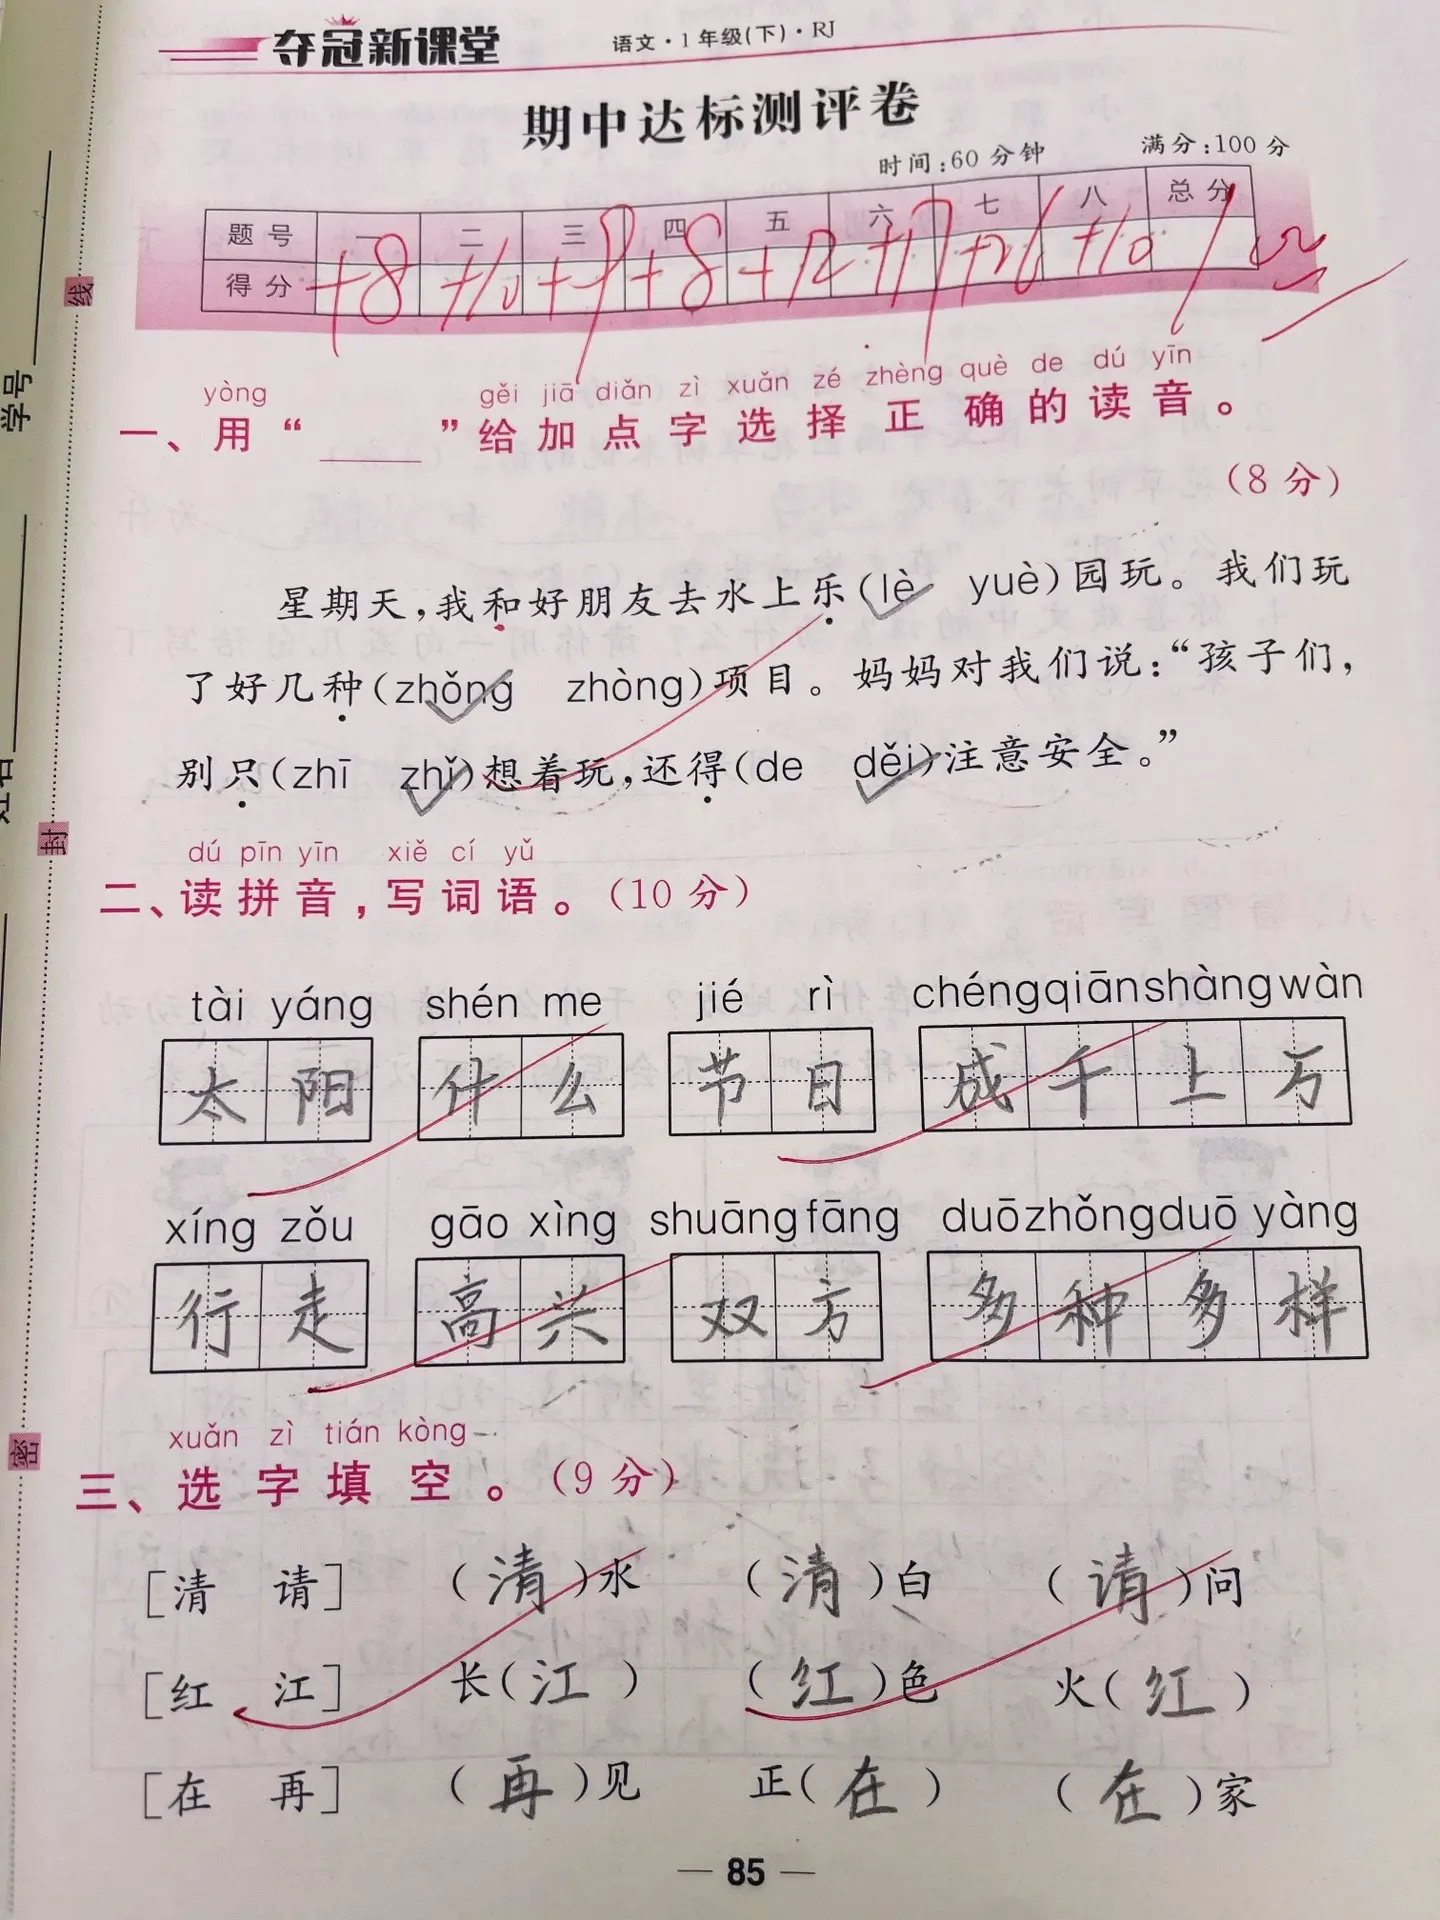 夺冠新课堂 语文·1年级(下)·RJ
期中达标测评卷
时间:60分钟 满分:100分
题号 一 二 三 四 五 六 七 八 总分
得分 +8 +10 +9 +8 +12 +17 +26 +10 100
yòng gěi jiā diǎn zì xuǎn zé zhèng què de dú yīn
一、用“____”给加点字选择正确的读音。
(8分)
星期天,我和好朋友去水上乐(lè yuè)园玩。我们玩
了好几种(zhǒng zhòng)项目。妈妈对我们说:“孩子们,
别只(zhī zhǐ)想着玩,还得(de děi)注意安全。”
dú pīn yīn xiě cí yǔ
二、读拼音,写词语。(10分)
tài yáng shén me jié rì chéngqiānshàngwàn
太阳 什么 节日 成千上万
xíng zǒu gāo xìng shuāngfāng duōzhǒngduō yàng
行走 高兴 双方 多种多样
xuǎn zì tián kòng
三、选字填空。(9分)
[清 请] (清)水 (清)白 (请)问
[红 江] 长(江) (红)色 火(红)
[在 再] (再)见 正(在) (在)家
— 85 —
学号
线
封
密